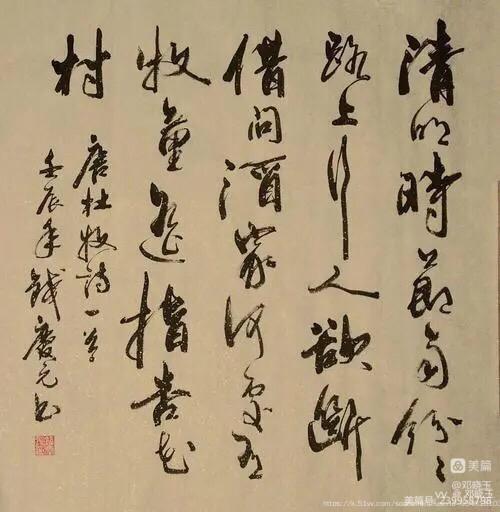 清明時節雨紛〻
路上行人欲斷
借問酒家何處有
牧童遥指杏花
村
唐杜牧詩一首
壬辰年錢慶元書
美篇
@邓晓玉